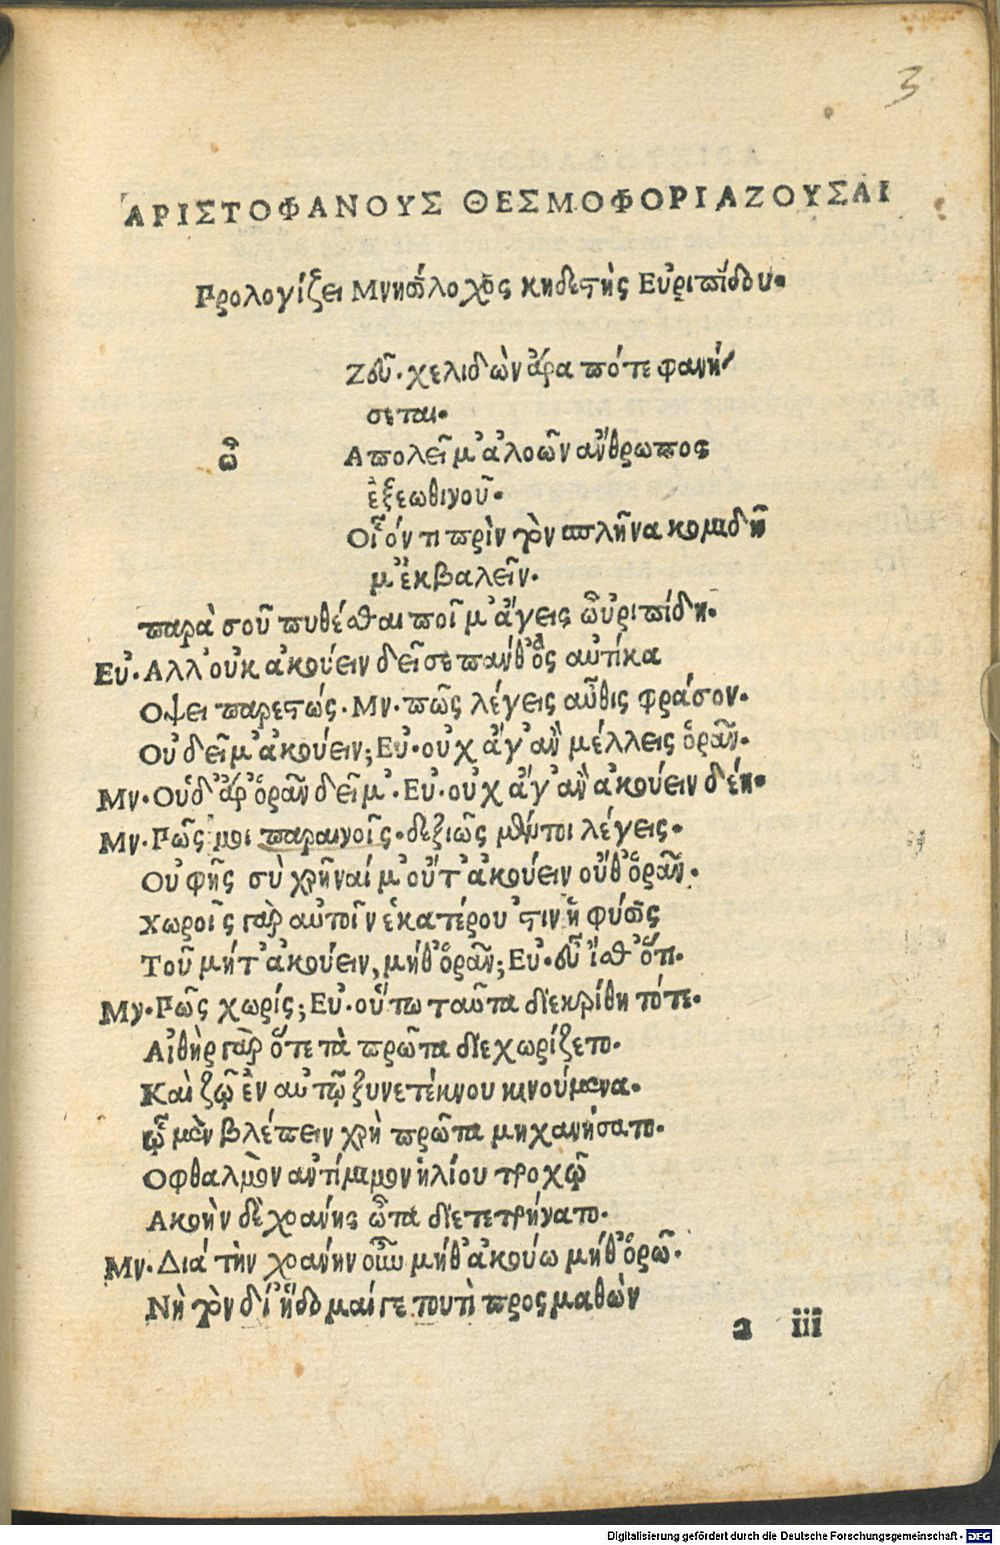 3
ΑΡΙΣΤΟΦΑΝΟΥΣ ΘΕΣΜΟΦΟΡΙΑΖΟΥΣΑΙ
Προλογίζει Μνησίλοχος κηδεστὴς Εὐριπίδου.
Ζεῦ. χελιδὼν ἆρα πότε φανή
σεται.
ὦ Απολεῖ μ' ἀλοῶν ἄνθρωπος
ἐξ ἑωθινοῦ.
Οἷόν τι πρὶν τὸν σπλῆνα κομιδῆ
μ' ἐκβαλεῖν.
παρὰ σοῦ πυθέσθαι ποῖ μ' ἄγεις ὦυριπίδη.
Εὐ. Αλλ' οὐκ ἀκούειν δεῖ σε πάνθ' ὅσ' αὐτίκα
Οψει παρεστώς. Μν. πῶς λέγεις αὖθις φράσον.
Οὐ δεῖ μ' ἀκούειν; Εὐ. οὐχ ἅγ' ἂν μέλλεις ὁρᾶν.
Μν. Οὐδ' ἆρ' ὁρᾶν δεῖ μ'. Εὐ. οὐχ ἅγ' ἂν ἀκούειν δέη.
Μν. Πῶς μοι παραινοῖς. δεξιῶς μέντοι λέγεις.
Οὐ φῂς σὺ χρῆναί μ' οὔτ' ἀκούειν οὔθ' ὁρᾶν.
Χωροὶς γὰρ αὐτοῖν ἑκατέρου 'στὶν ἡ φύσις
Τοῦ μήτ' ἀκούειν, μήθ' ὁρᾶν; Εὐ. εὖ ἴσθ' ὅτι.
Μν. Πῶς χωρίς; Εὐ. οὕτω ταῦτα διεκρίθη τότε.
Αἰθὴρ γὰρ ὅτε τὰ πρῶτα διεχωρίζετο.
Καὶ ζῷ' ἐν αὐτῷ ξυνετέκνου κινούμενα.
ᾧ μὲν βλέπειν χρὴ πρῶτα μηχανήσατο.
Οφθαλμὸν ἀντίμιμον ἡλίου τροχῷ
Ακοὴν δὲ χοάνης ὦτα διετετρήνατο.
Μν. Διὰ τὴν χοάνην οὖν μήθ' ἀκούω μήθ' ὁρῶ.
Νὴ τὸν δί' ἥδομαί γε τουτὶ προσμαθὼν
a iii
Digitalisierung gefördert durch die Deutsche Forschungsgemeinschaft - DFG